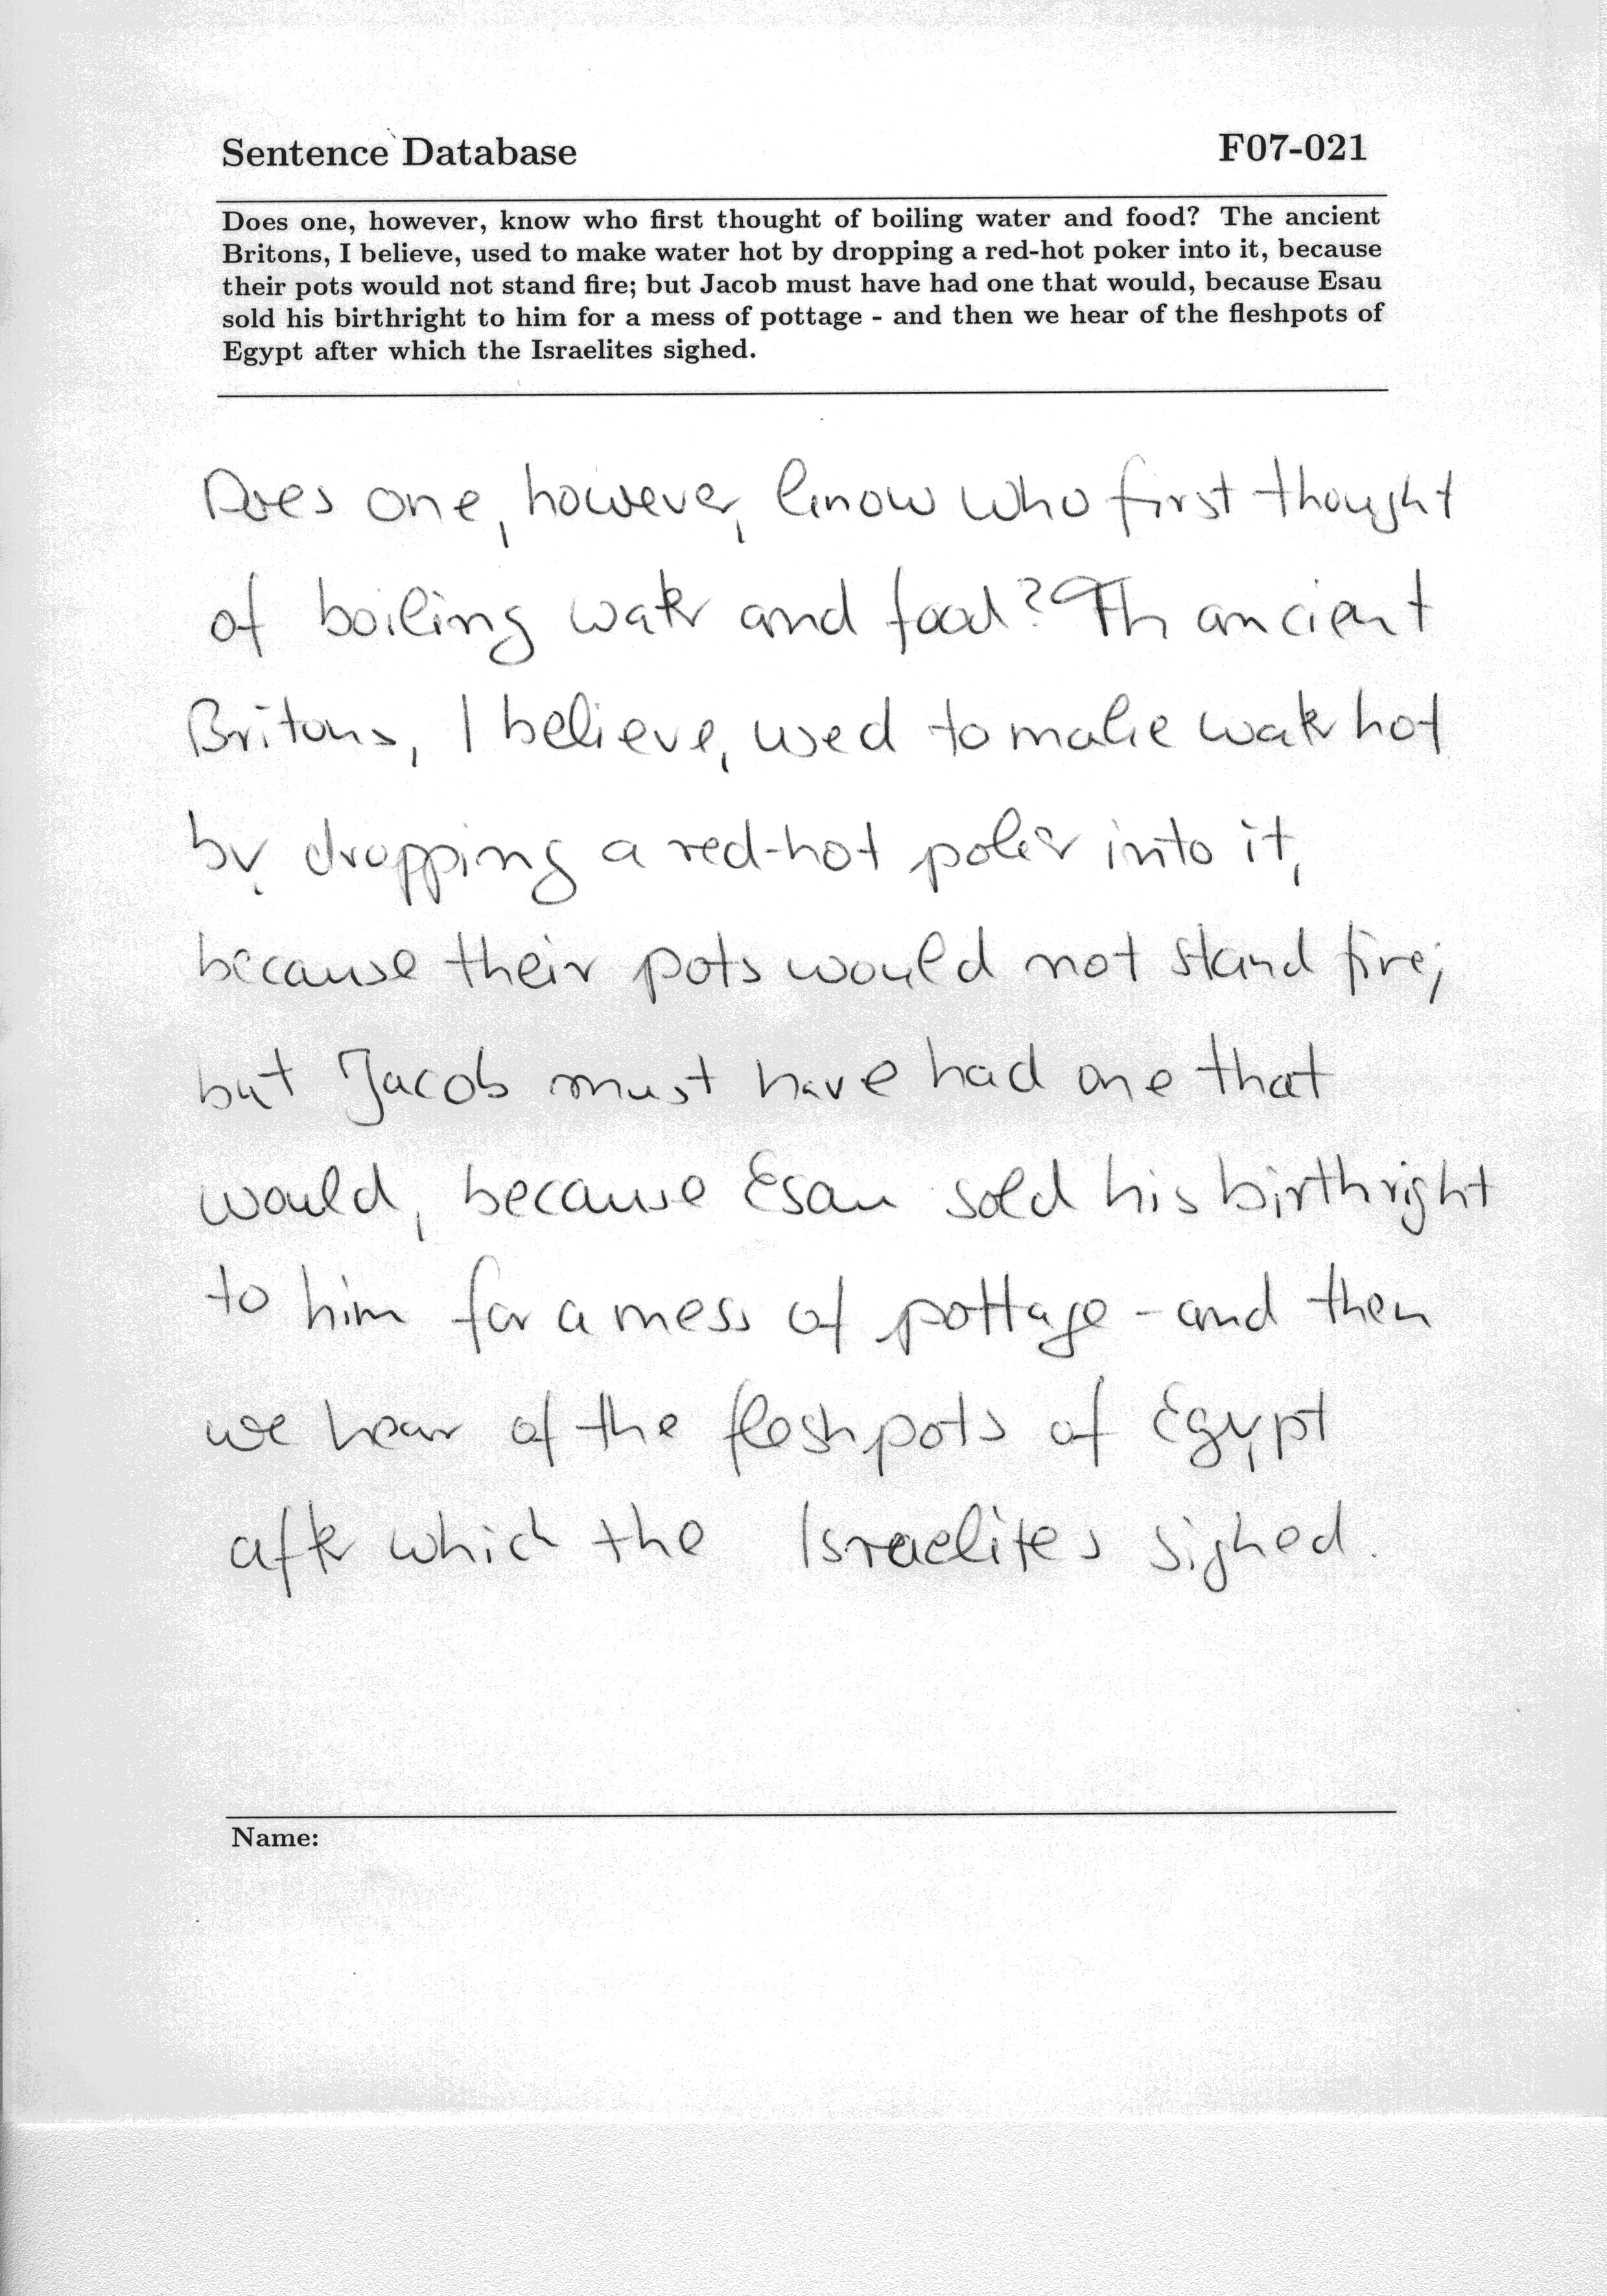 Sentence Database F07-021
Does one, however, know who first thought of boiling water and food? The ancient
Britons, I believe, used to make water hot by dropping a red-hot poker into it, because
their pots would not stand fire; but Jacob must have had one that would, because Esau
sold his birthright to him for a mess of pottage - and then we hear of the fleshpots of
Egypt after which the Israelites sighed.
Does one, however, know who first thought
of boiling water and food? Th ancient
Britons, I believe, used to make water hot
by dropping a red-hot poker into it,
because their pots would not stand fire;
but Jacob must have had one that
would, because Esau sold his birthright
to him for a mess of pottage - and then
we hear of the fleshpots of Egypt
after which the Israelites sighed.
Name: